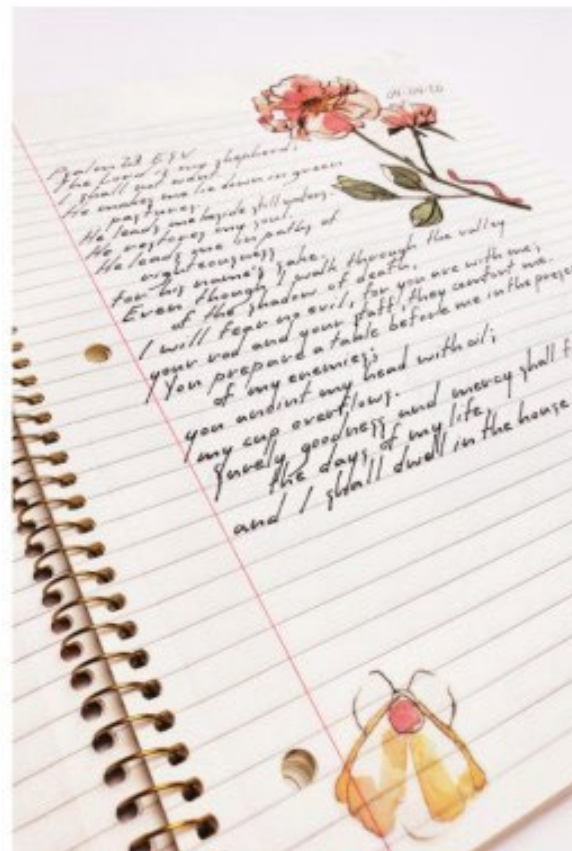 04-04-26
Psalm 23 ESV
The Lord is my shepherd;
I shall not want.
He makes me lie down in green
pastures.
He leads me beside still waters.
He restores my soul.
He leads me in paths of
righteousness
for his name's sake.
Even though I walk through the valley
of the shadow of death,
I will fear no evil, for you are with me;
your rod and your staff, they comfort me.
You prepare a table before me in the prese
of my enemies;
you anoint my head with oil;
my cup overflows.
Surely goodness and mercy shall f
the days of my life,
and I shall dwell in the house